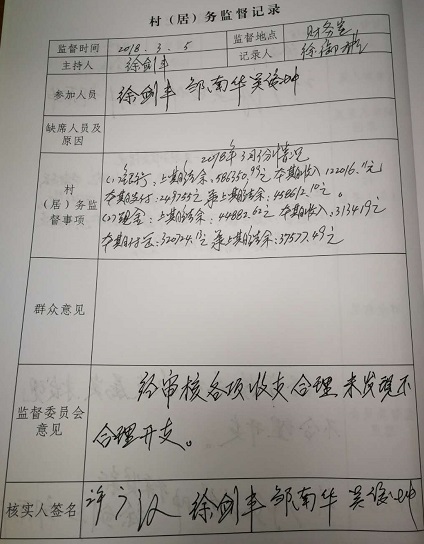 村（居）务监督记录
监督时间 2018.3.5 监督地点 财务室
主持人 徐剑丰 记录人 徐
参加人员 徐剑丰 邹南华 吴
缺席人员及原因
村（居）务监督事项
2018年3月份情况
(1)银行：上期结余：586350.99元 本期收入122016.11元
本期支付：249755元 累上期结余：458612.10元。
(2)现金：上期结余：44882.62元 本期收入：313419元
本期付出：320724.13元 累上期结余：37577.49元
群众意见
监督委员会意见
经审核各项收支合理 未发现不
合理开支。
核实人签名 许 徐剑丰 邹南华 吴